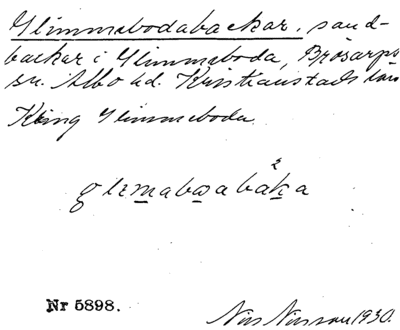 Glimmebodabackar, sand-
backar i Glimmeboda, Brösarps
sn. Albo hd. Kristianstads län
Kring Glimmeboda.
Nr 5898.
Nils Nilsson 1930.